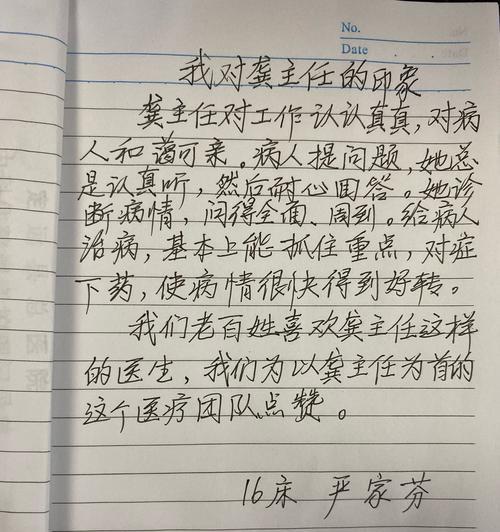 No.
Date
我对龚主任的印象
龚主任对工作认认真真，对病
人和蔼可亲。病人提问题，她总
是认真听，然后耐心回答。她诊
断病情，问得全面、周到。给病人
治病，基本上能抓住重点，对症
下药，使病情很快得到好转。
我们老百姓喜欢龚主任这样
的医生，我们为以龚主任为首的
这个医疗团队点赞。
16床 严家芬